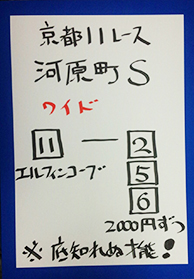 京都11レース
河原町S
ワイド
11 ― 2
5
エルフィンコーブ
6
2000円ずつ
※底知れぬ才能!